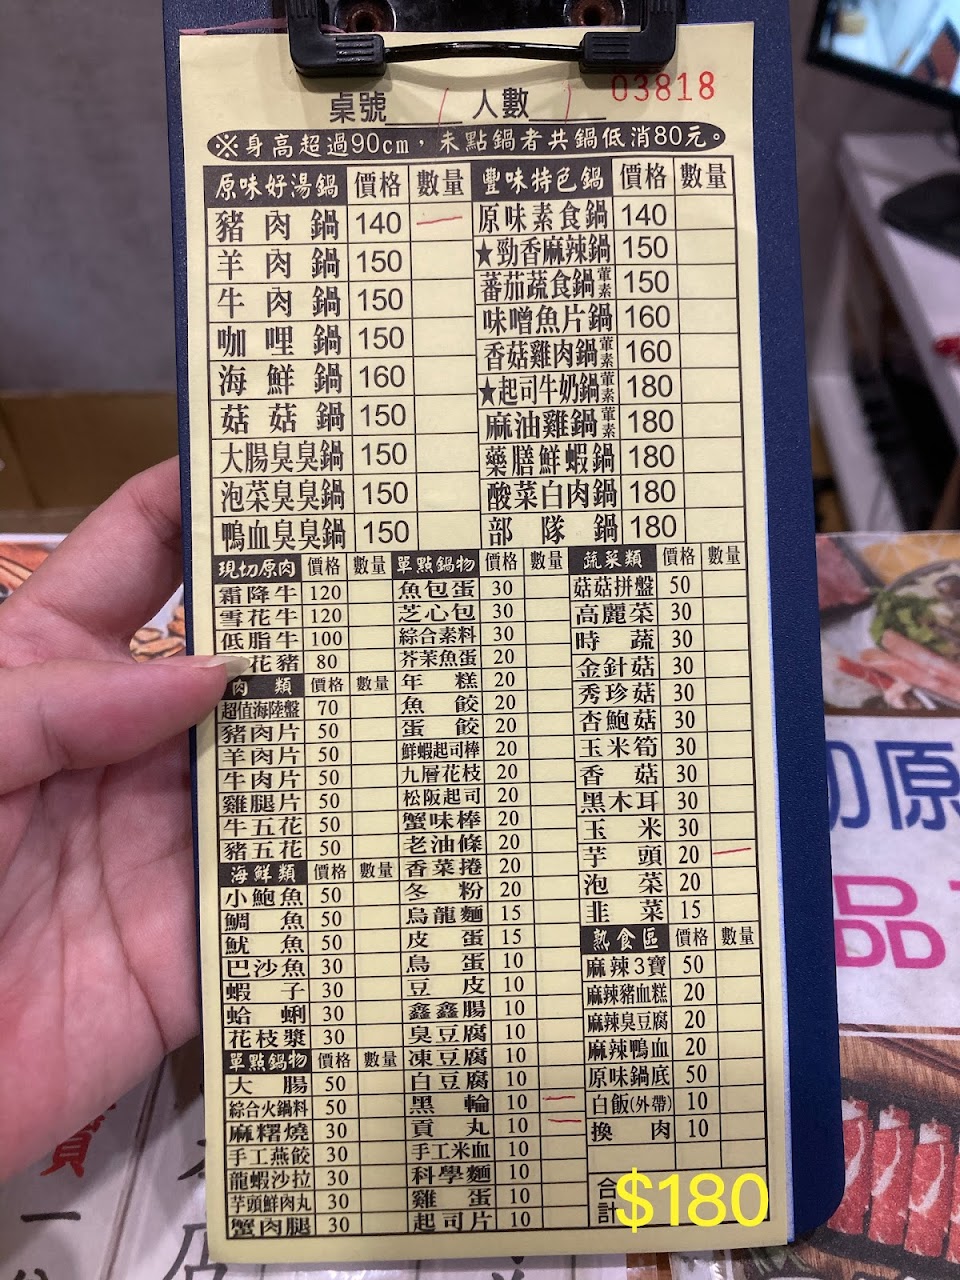 03818
桌號 人數
※身高超過90cm，未點鍋者共鍋低消80元。
原味好湯鍋 價格 數量
豬肉鍋 140 一
羊肉鍋 150
牛肉鍋 150
咖哩鍋 150
海鮮鍋 160
菇菇鍋 150
大腸臭臭鍋 150
泡菜臭臭鍋 150
鴨血臭臭鍋 150
豐味特色鍋 價格 數量
原味素食鍋 140
★勁香麻辣鍋 150
蕃茄蔬食鍋葷素 150
味噌魚片鍋 160
香菇雞肉鍋葷素 160
★起司牛奶鍋葷素 180
麻油雞鍋葷素 180
藥膳鮮蝦鍋 180
酸菜白肉鍋 180
部隊鍋 180
現切原肉 價格 數量
霜降牛 120
雪花牛 120
低脂牛 100
花豬 80
肉類 價格 數量
超值海陸盤 70
豬肉片 50
羊肉片 50
牛肉片 50
雞腿片 50
牛五花 50
豬五花 50
海鮮類 價格 數量
小鮑魚 50
鯛魚 50
魷魚 50
巴沙魚 30
蝦子 30
蛤蜊 30
花枝漿 30
單點鍋物 價格 數量
大腸 50
綜合火鍋料 50
麻糬燒 30
手工燕餃 30
龍蝦沙拉 30
芋頭鮮肉丸 30
蟹肉腿 30
單點鍋物 價格 數量
魚包蛋 30
芝心包 30
綜合素料 30
芥茉魚蛋 20
年糕 20
魚餃 20
蛋餃 20
鮮蝦起司棒 20
九層花枝 20
松阪起司 20
蟹味棒 20
老油條 20
香菜捲 20
冬粉 20
烏龍麵 15
皮蛋 15
鳥蛋 10
豆皮 10
鑫鑫腸 10
臭豆腐 10
凍豆腐 10
白豆腐 10
黑輪 10 二
貢丸 10
手工米血 10
科學麵 10
雞蛋 10
起司片 10
蔬菜類 價格 數量
菇菇拼盤 50
高麗菜 30
時蔬 30
金針菇 30
秀珍菇 30
杏鮑菇 30
玉米筍 30
香菇 30
黑木耳 30
玉米 30
芋頭 20 一
泡菜 20
韭菜 15
熟食區 價格 數量
麻辣3寶 50
麻辣豬血糕 20
麻辣臭豆腐 20
麻辣鴨血 20
原味鍋底 50
白飯(外帶) 10
換肉 10
合計 $180
切原
品
一